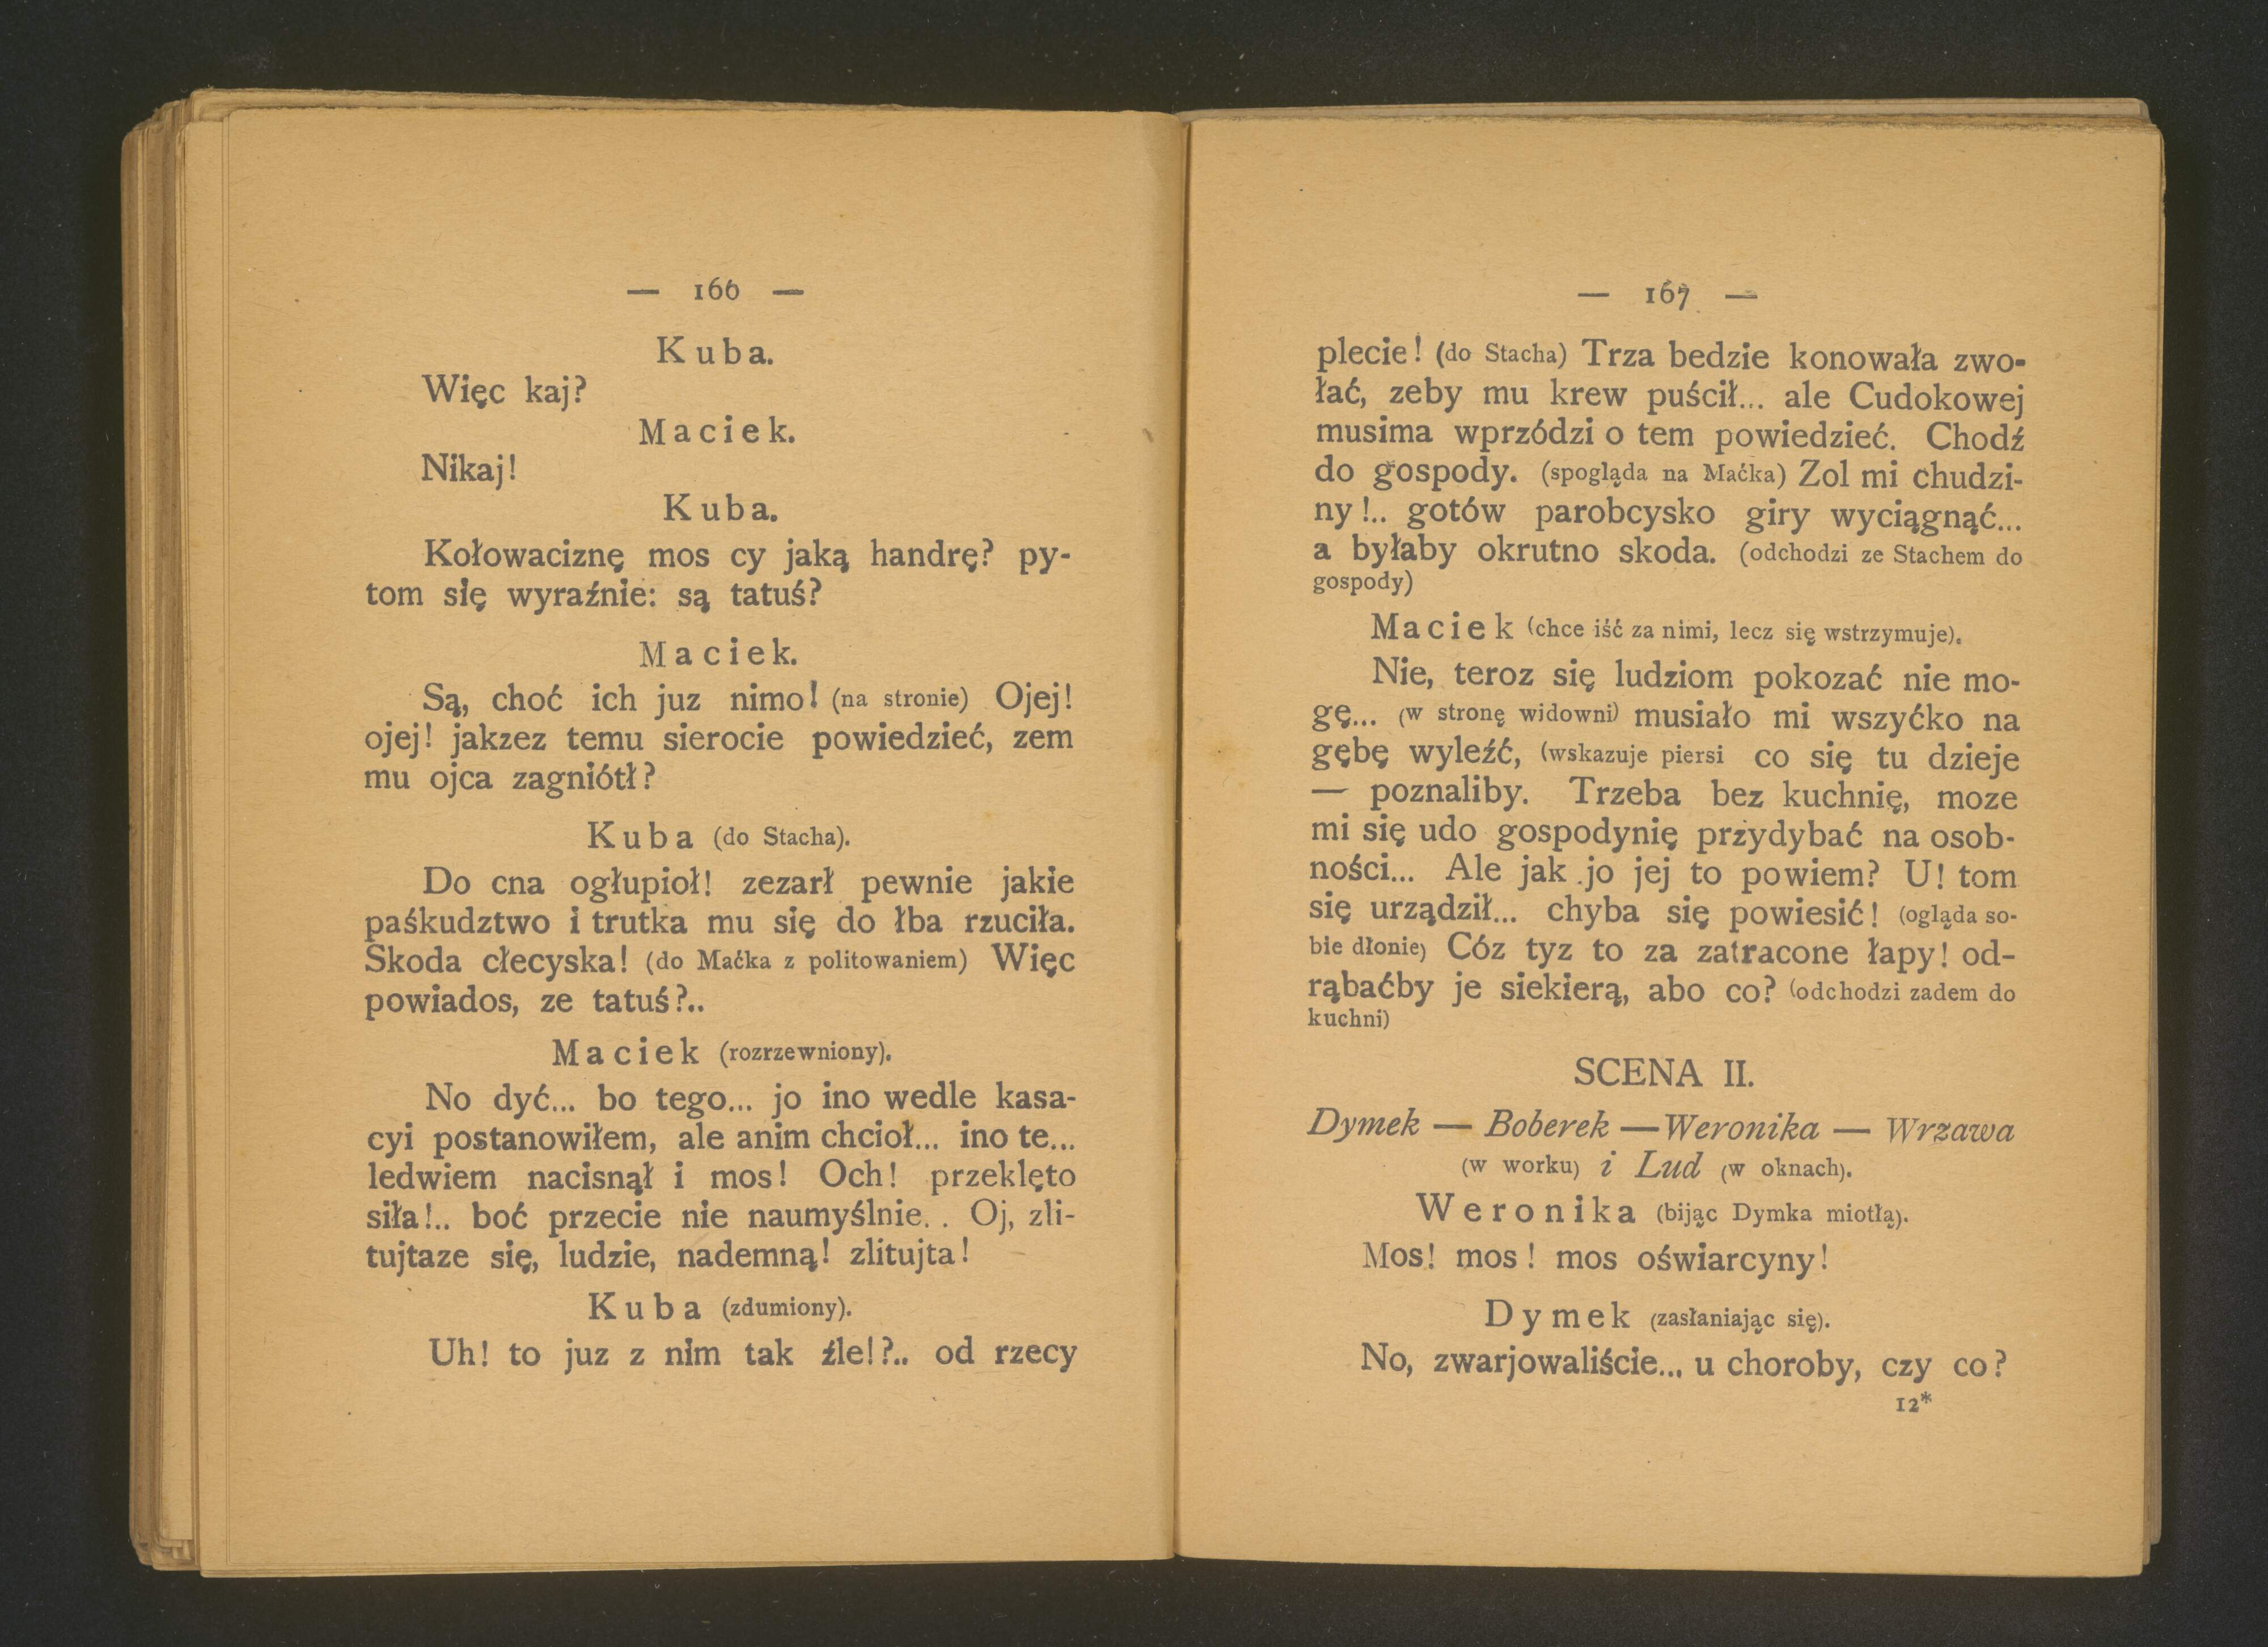 — 166 —
Kuba.
Więc kaj?
Maciek.
Nikaj!
Kuba.
Kołowaciznę mos cy jaką handrę? py-
tom się wyraźnie: są tatuś?
Maciek.
Są, choć ich juz nimo! (na stronie) Ojej!
ojej! jakzez temu sierocie powiedzieć, zem
mu ojca zagniótł?
Kuba (do Stacha).
Do cna ogłupioł! zezarł pewnie jakie
paśkudztwo i trutka mu się do łba rzuciła.
Skoda cłecyska! (do Maćka z politowaniem) Więc
powiados, ze tatuś?..
Maciek (rozrzewniony).
No dyć... bo tego... jo ino wedle kasa-
cyi postanowiłem, ale anim chcioł... ino te...
ledwiem nacisnął i mos! Och! przeklęto
siła!.. boć przecie nie naumyślnie. . Oj, zli-
tujtaze się, ludzie, nademną! zlitujta!
Kuba (zdumiony).
Uh! to juz z nim tak źle!?.. od rzecy
— 167 —
plecie! (do Stacha) Trza bedzie konowała zwo-
łać, zeby mu krew puścił... ale Cudokowej
musima wprzódzi o tem powiedzieć. Chodź
do gospody. (spogląda na Maćka) Zol mi chudzi-
ny!.. gotów parobcysko giry wyciągnąć...
a byłaby okrutno skoda. (odchodzi ze Stachem do
gospody)
Maciek (chce iść za nimi, lecz się wstrzymuje).
Nie, teroz się ludziom pokozać nie mo-
gę... (w stronę widowni) musiało mi wszyćko na
gębę wyleźć, (wskazuje piersi co się tu dzieje
— poznaliby. Trzeba bez kuchnię, moze
mi się udo gospodynię przydybać na osob-
ności... Ale jak jo jej to powiem? U! tom
się urządził... chyba się powiesić! (ogląda so-
bie dłonie) Cóz tyz to za zatracone łapy! od-
rąbaćby je siekierą, abo co? (odchodzi zadem do
kuchni)
SCENA II.
Dymek — Boberek — Weronika — Wrzawa
(w worku) i Lud (w oknach).
Weronika (bijąc Dymka miotłą).
Mos! mos! mos oświarcyny!
Dymek (zasłaniając się).
No, zwarjowaliście... u choroby, czy co?
12*